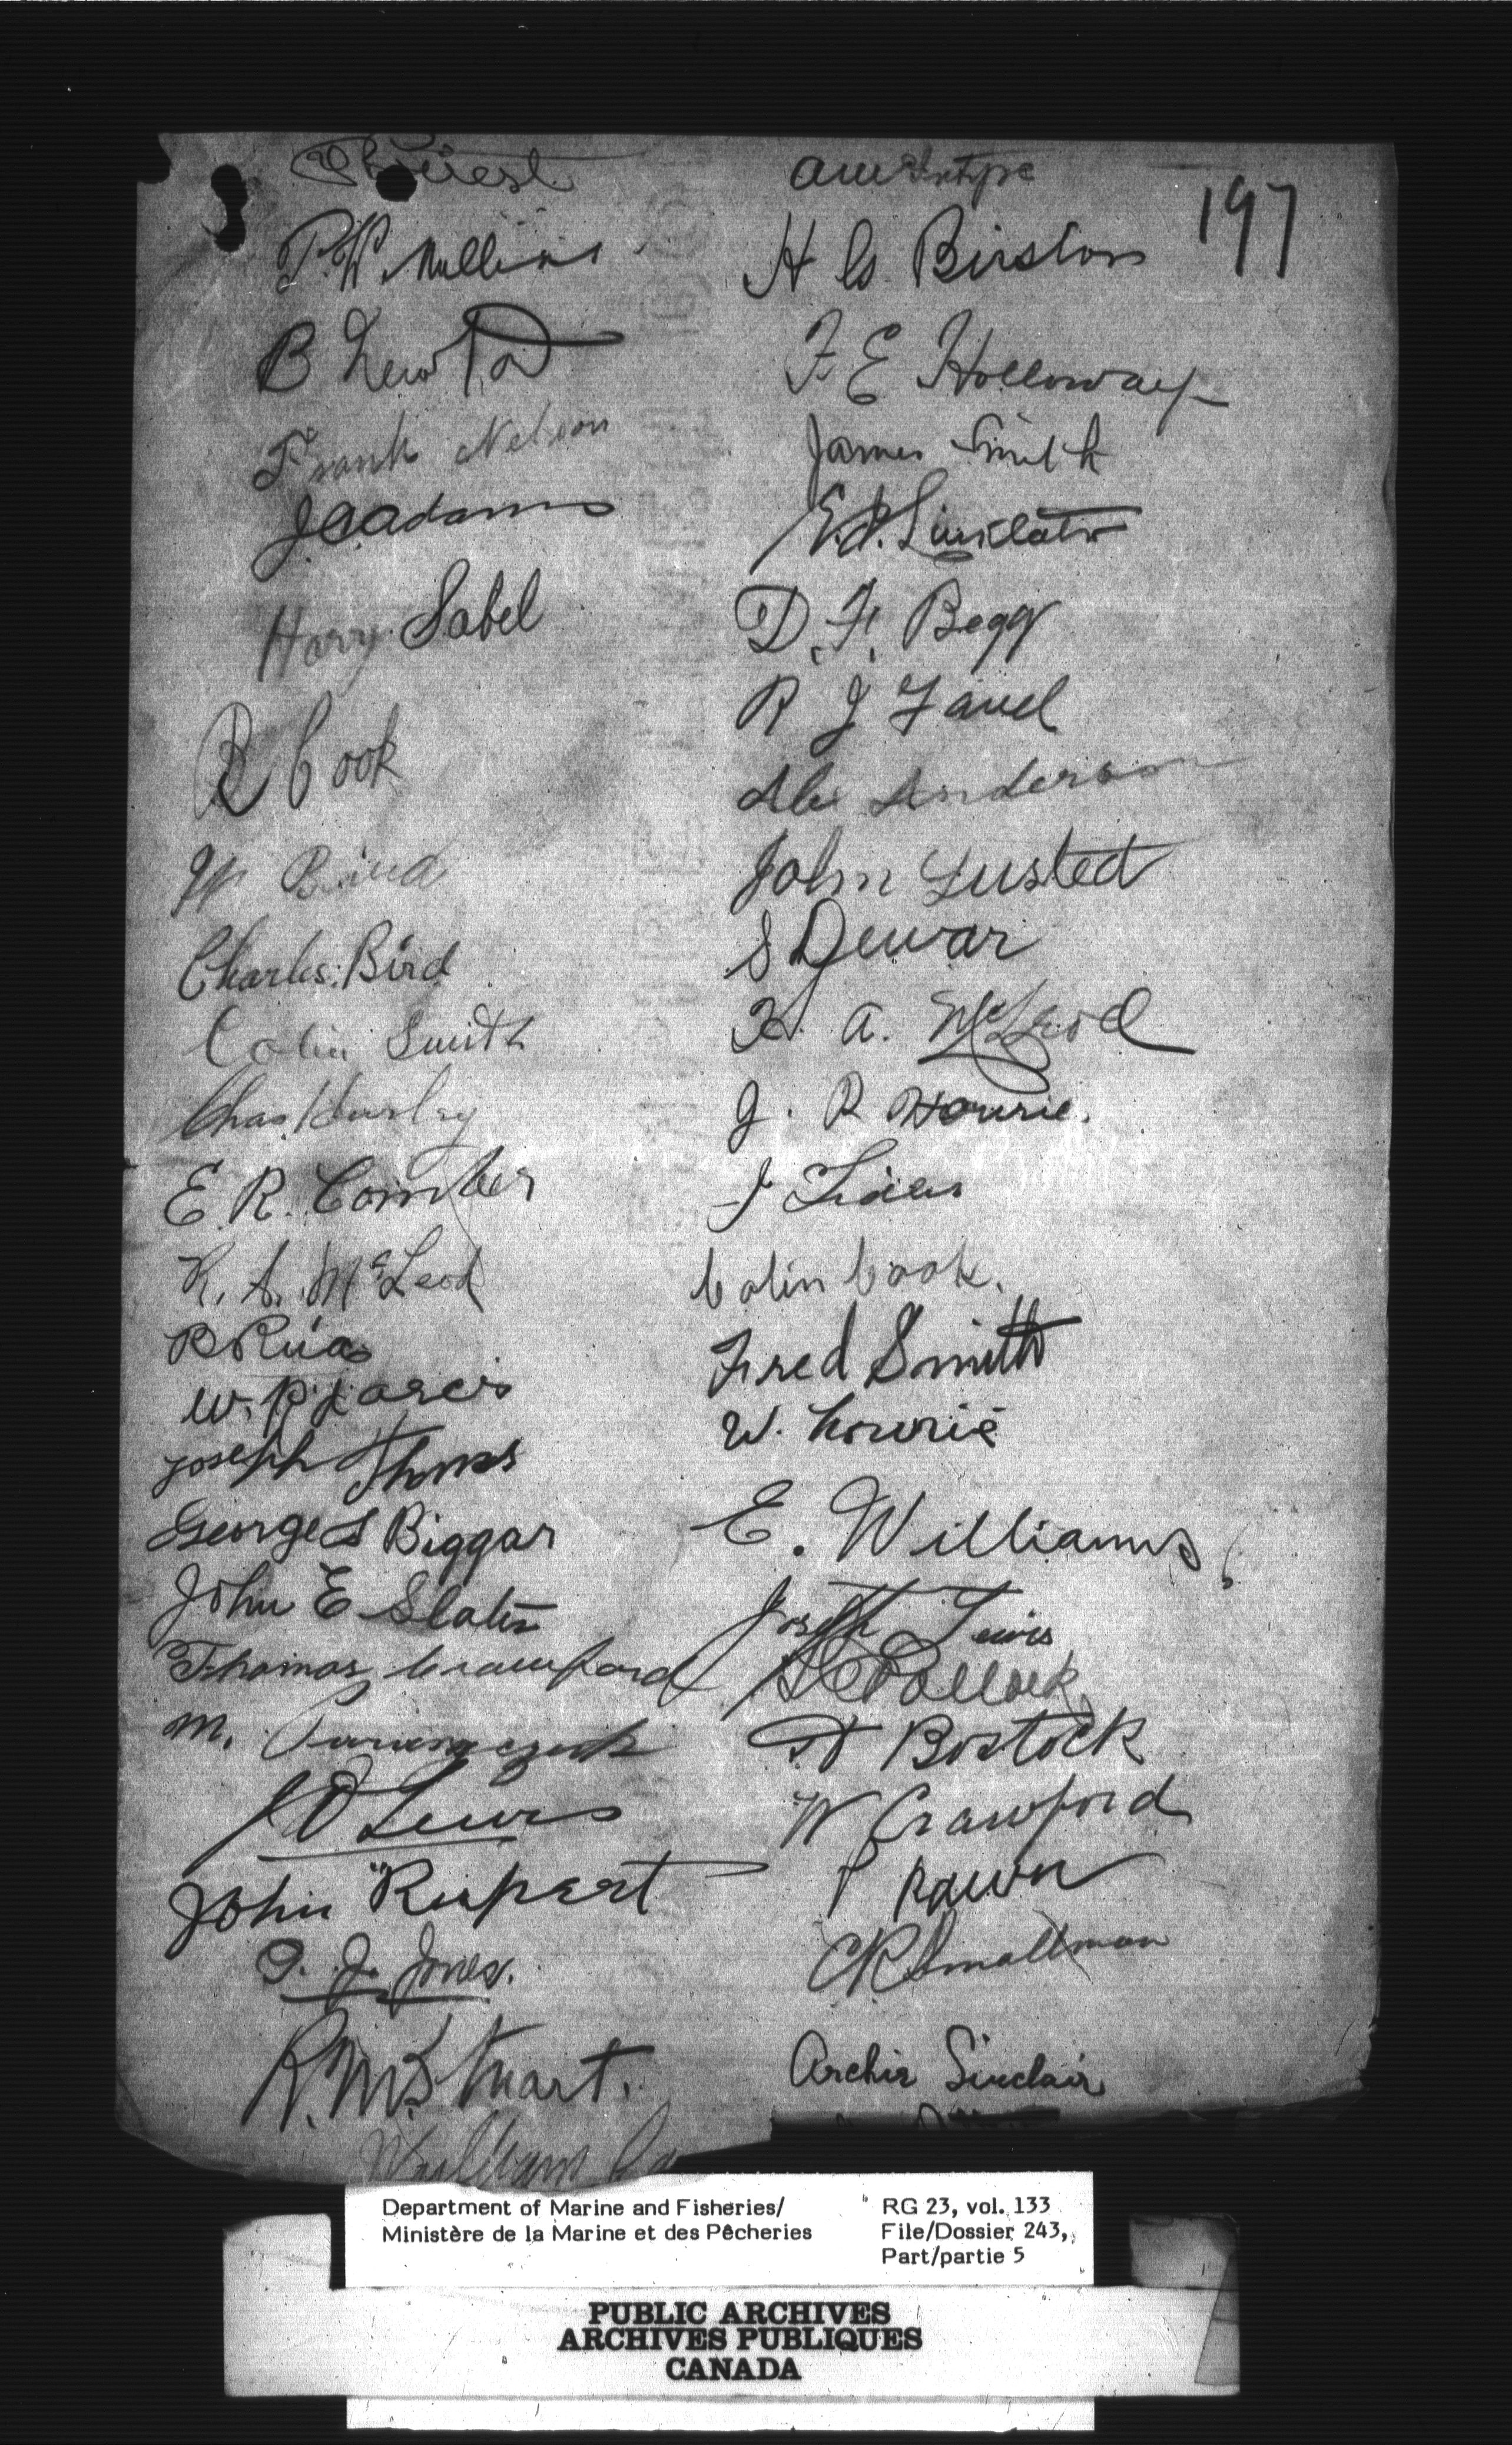 197
P. W. Mullins
B Newton
Frank Nelson
J. A. Adams
Harry Sabel
R Cook
W
Charles Bird
Colin Smith
Chas
E. R. Comber
K. A. McLeod
B
W. R.
Joseph Thomas
George S Biggar
John E Slater
Thomas Crawford
M.
J D Lewis
John Rupert
J. Jones.
R. M. Stuart.
William
H
F E Holloway
James Smith
Sinclair
D. F. Begg
R J Favel
Alex Anderson
John Lusted
S Dewar
K. A. McLeod
J. R Hourie.
J
Colin Cook.
Fred Smith
W. Hourie
E. Williams
Joseph Lewis
Pollock
Bostock
W Crawford
Smallman
Archie Sinclair
Department of Marine and Fisheries/
Ministère de la Marine et des Pêcheries
RG 23, vol. 133
File/Dossier 243,
Part/partie 5
PUBLIC ARCHIVES
ARCHIVES PUBLIQUES
CANADA